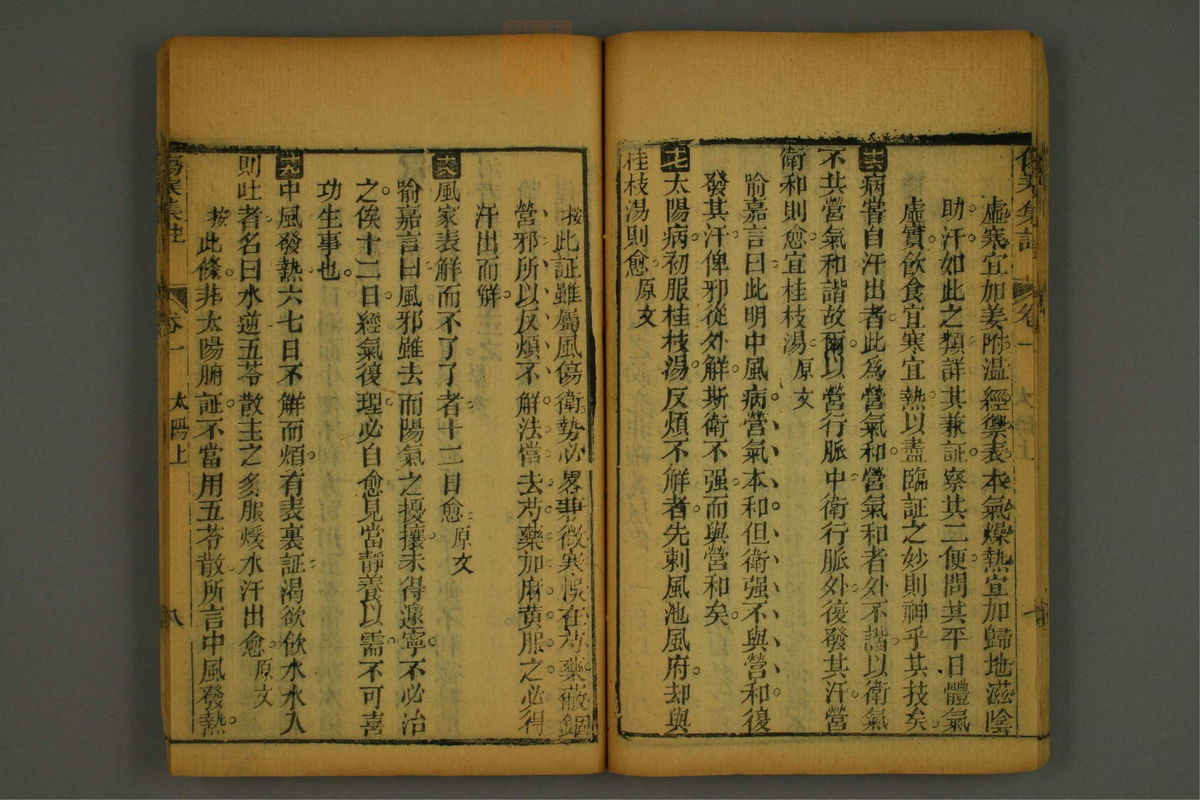 虛寒宜加姜附温經禦表本氣燥熱宜加歸地滋陰
助汗如此之類詳其兼証察其二便問其平日體氣
虛實飲食宜寒宜熱以盡臨証之妙則神乎其技矣
十六病嘗自汗出者此爲營氣和營氣和者外不諧以衛氣
不共營氣和諧故爾以營行脈中衛行脈外復發其汗營
衛和則愈宜桂枝湯原文
喻嘉言曰此明中風病營氣本和但衛强不與營和復
發其汗俾邪從外解斯衛不强而與營和矣
十七太陽病初服桂枝湯反煩不解者先刺風池風府却與
桂枝湯則愈原文
按此証雖屬風傷衛勢必畧兼微寒悞在芍藥
營邪所以反煩不解法當去芍藥加麻黄服之必得
汗出而解
十八風家表解而不了了者十二日愈原文
喻嘉言曰風邪雖去而陽氣之擾攘未得遽寧不必治
之俟十二日經氣復理必自愈見當靜養以需不可喜
功生事也
十九中風發熱六七日不解而煩有表裏証渴欲飲水水入
則吐者名曰水逆五苓散主之多服煖水汗出愈原文
按此條非太陽腑証不當用五苓散所言中風發熱
傷寒集註 卷一 太陽上 八